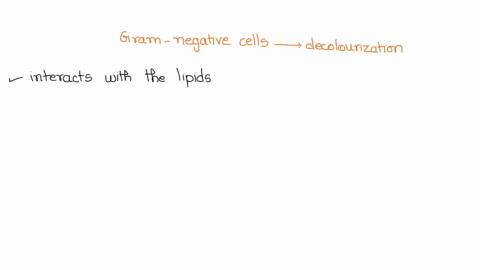 Gram-negative cells → decolourization
✓ interacts with the lipids